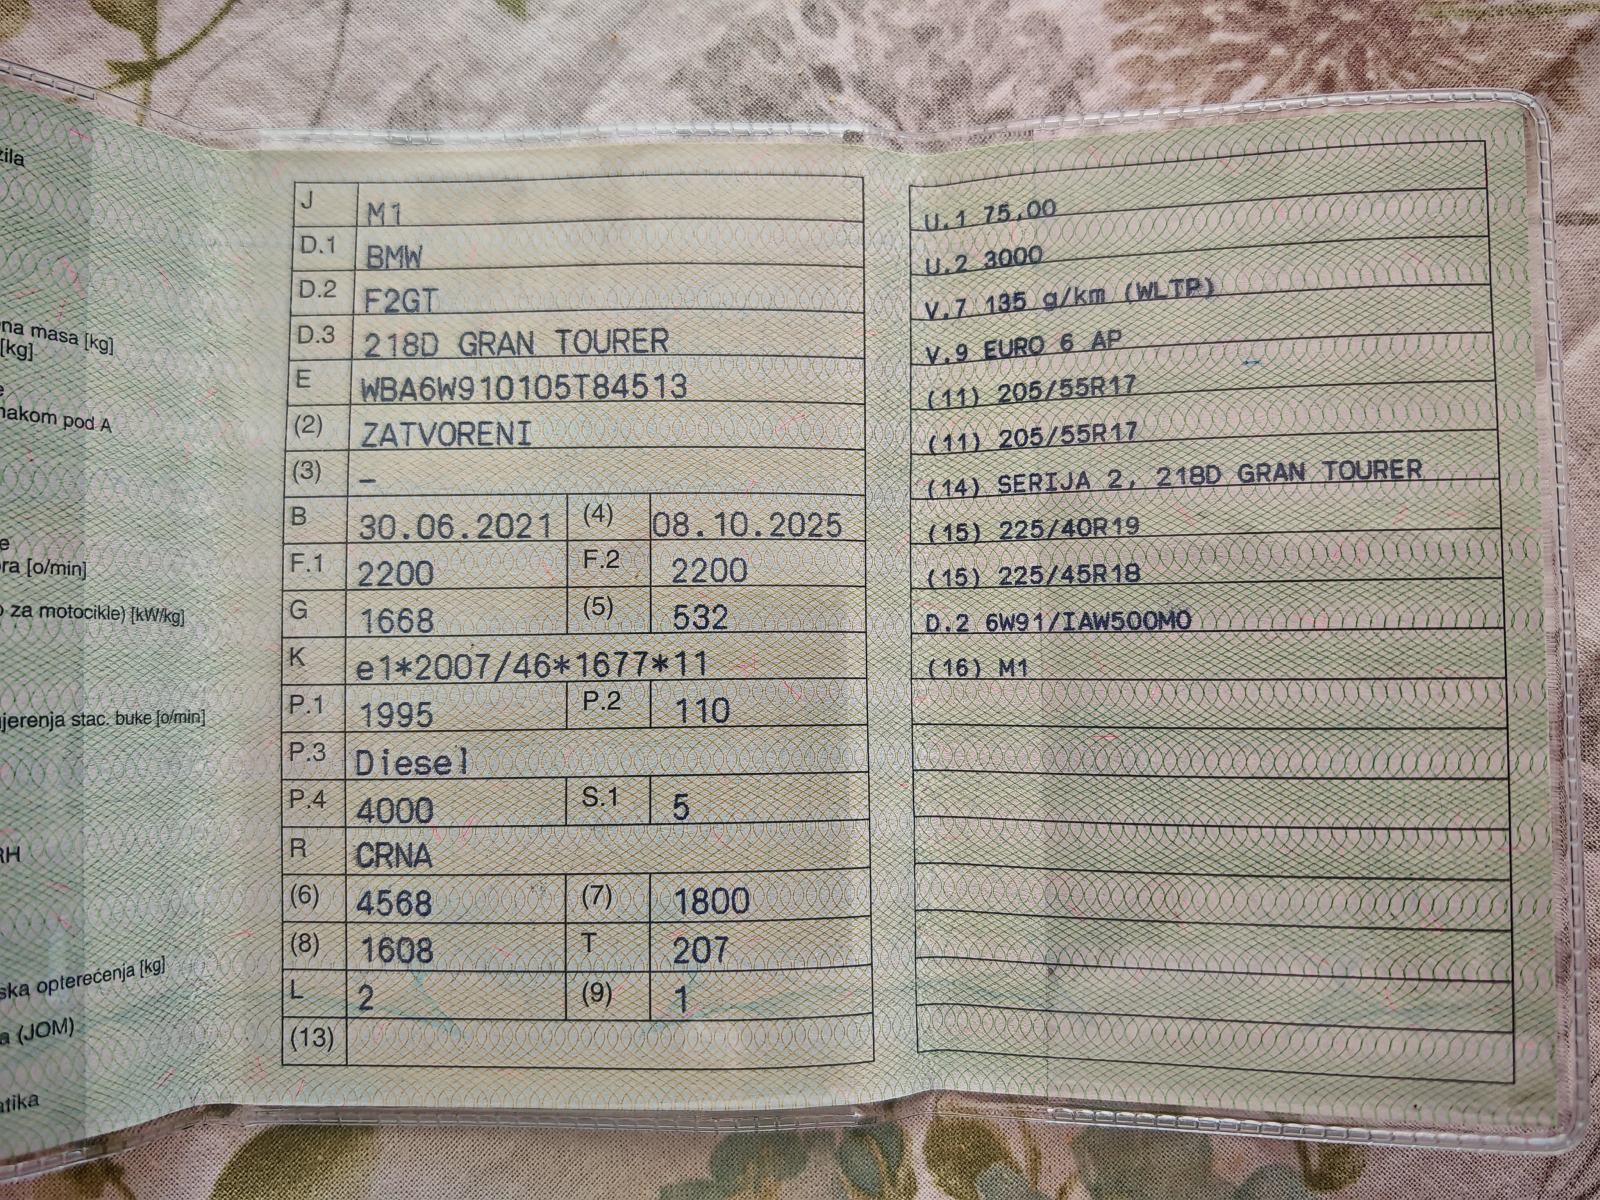 zila
na masa [kg]
[kg]
e
nakom pod A
e
ra [o/min]
o za motocikle) [kW/kg]
jerenja stac. buke [o/min]
RH
ska opterećenja [kg]
a (JOM)
atika
J M1
D.1 BMW
D.2 F2GT
D.3 218D GRAN TOURER
E WBA6W910105T84513
(2) ZATVORENI
(3) –
B 30.06.2021 (4) 08.10.2025
F.1 2200 F.2 2200
G 1668 (5) 532
K e1*2007/46*1677*11
P.1 1995 P.2 110
P.3 Diesel
P.4 4000 S.1 5
R CRNA
(6) 4568 (7) 1800
(8) 1608 T 207
L 2 (9) 1
(13)
U.1 75,00
U.2 3000
V.7 135 g/km (WLTP)
V.9 EURO 6 AP
(11) 205/55R17
(11) 205/55R17
(14) SERIJA 2, 218D GRAN TOURER
(15) 225/40R19
(15) 225/45R18
D.2 6W91/IAW500M0
(16) M1